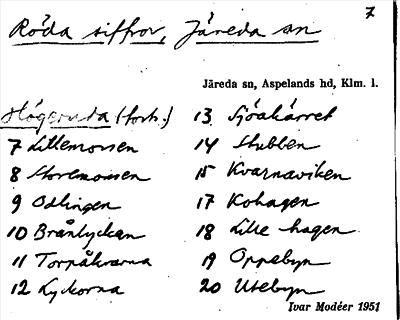 7
Röda siffror, Järeda sn
Järeda sn, Aspelands hd, Klm. l.
Högeruda (forts.)
7 Lillemossen
8 Storemossen
9 Odlingen
10 Brånlyckan
11 Torpåkrarna
12 Lyckorna
13 Sjöakärret
14 Stubben
15 Kvarnaviken
17 Kohagen
18 Lille-hagen
19 Oppebyn
20 Utebyn
Ivar Modéer 1951